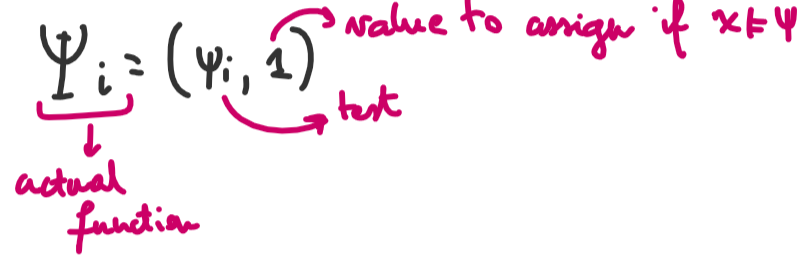 Ψi = (ψi, 1)
value to assign if x ⊨ ψ
test
actual
function